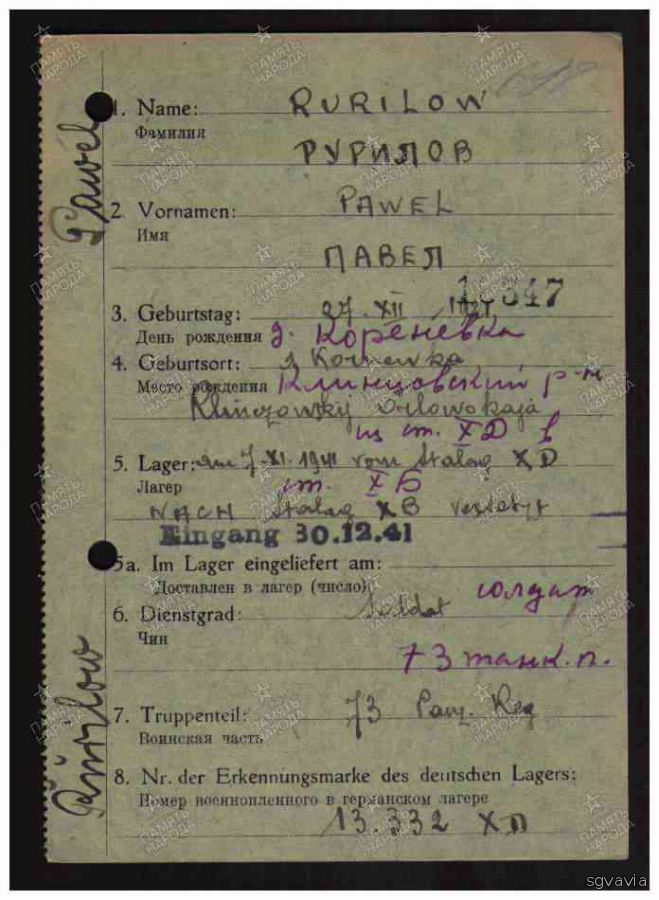 1. Name: RURILOW
Фамилия
РУРИЛОВ
2. Vornamen: PAWEL
Имя
ПАВЕЛ
3. Geburtstag: 27. XII
День рождения д. Кореневка
4. Geburtsort:
Место рождения Клинцовский р-н
из ст. XD в
5. Lager: am 7.XI.1941 vom Stalag XD
Лагер ст. XБ
NACH Stalag XB versetzt
Eingang 30.12.41
5a. Im Lager eingeliefert am:
Доставлен в лагер (число)
6. Dienstgrad: Soldat солдат
Чин
73 танк. п.
7. Truppenteil: 73 Panz. Reg
Воинская часть
8. Nr. der Erkennungsmarke des deutschen Lagers:
Номер военнопленного в германском лагере
13.332 XD
Pawel
Rurilow
ПАМЯТЬ НАРОДА
sgvavia